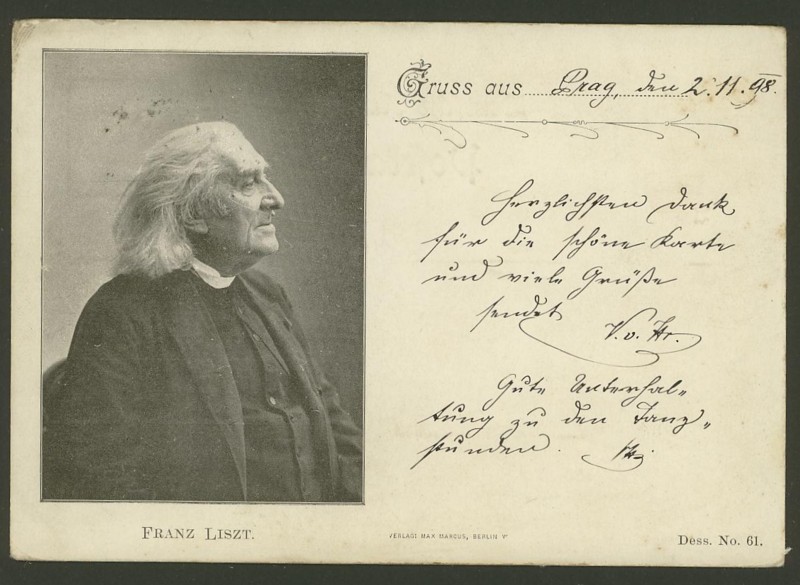 Gruss aus Prag, den 2.11.98.
Herzlichsten Dank
für die schöne Karte
und viele Grüße
sendet
V. v. Hr.
Gute Unterhal-
tung zu den Tanz-
stunden.
FRANZ LISZT.
VERLAG: MAX MARCUS, BERLIN W
Dess. No. 61.